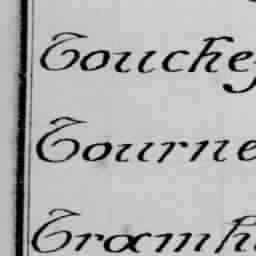 Touchey
Tourne
Tramh